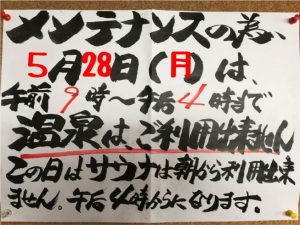 メンテナンスの為、
5月28日(月)は、
午前9時～午后4時まで
温泉は、ご利用出来ません
この日はサウナは朝から利用出来
ません。午后4時からになります。